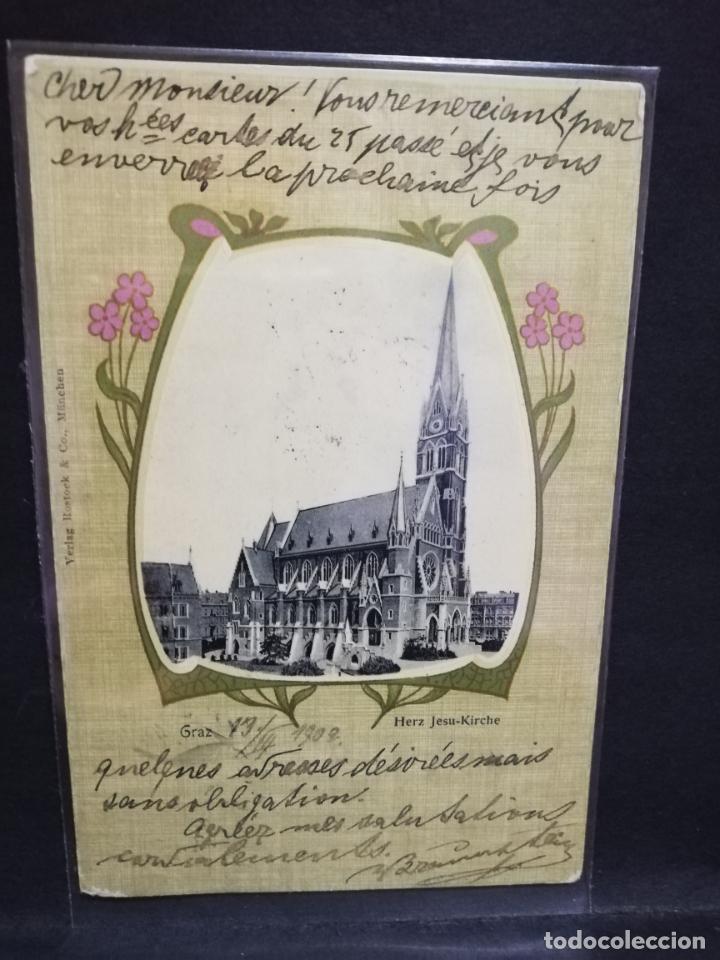 Cher Monsieur! Vous remerciant pour
vos h ées cartes du 25 passé et je vous
enverrai la prochaine fois
Verlag Rostock & Co., München
Graz
1902.
Herz Jesu-Kirche
quelques adresses désirées mais
sans obligation.
Agréez mes salutations
cordialements.
todocoleccion